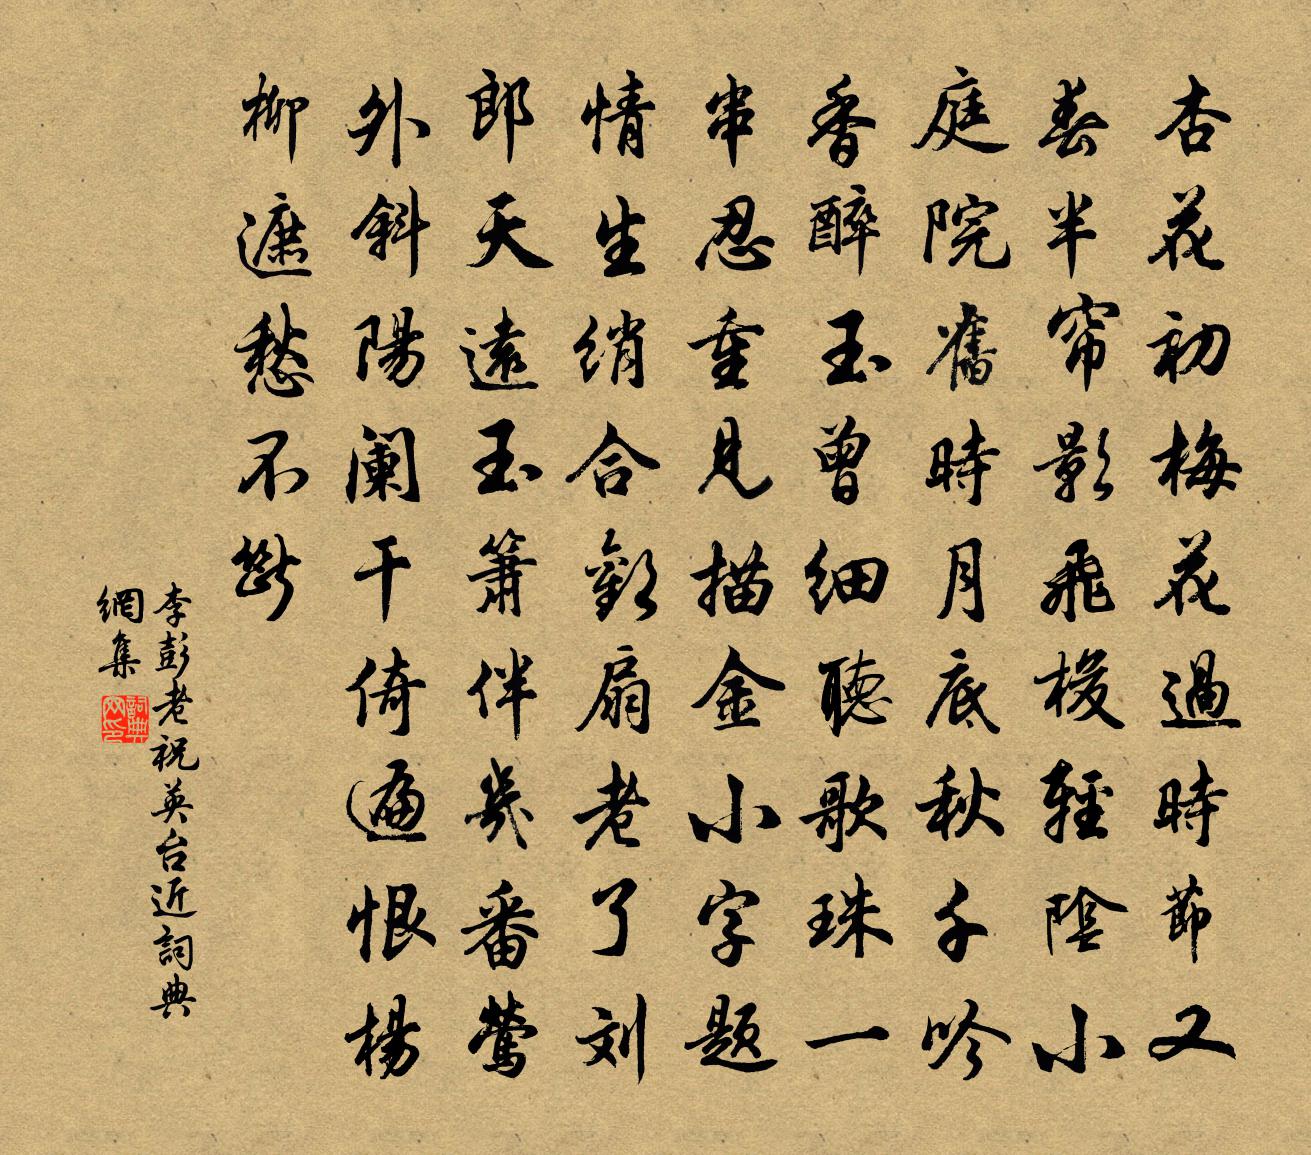 杏花初梅花過時節又
春半帘影飛梭輕陰小
庭院舊時月底秋千吟
香醉玉曾細聽歌珠一
串忍重見描金小字题
情生綃合歡扇老了刘
郎天遠玉簫伴幾番鶯
外斜陽闌干倚遍恨楊
柳遮愁不斷
李彭老祝英台近詞典
網集
詞典網印